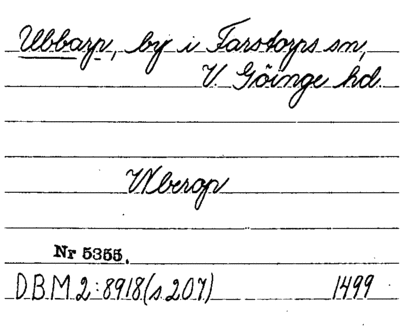 Ubbarp, by i Farstorps sn,
V. Göinge hd.
Wberop
Nr 5355.
D.B.M 2:8918 (s 207) 1499